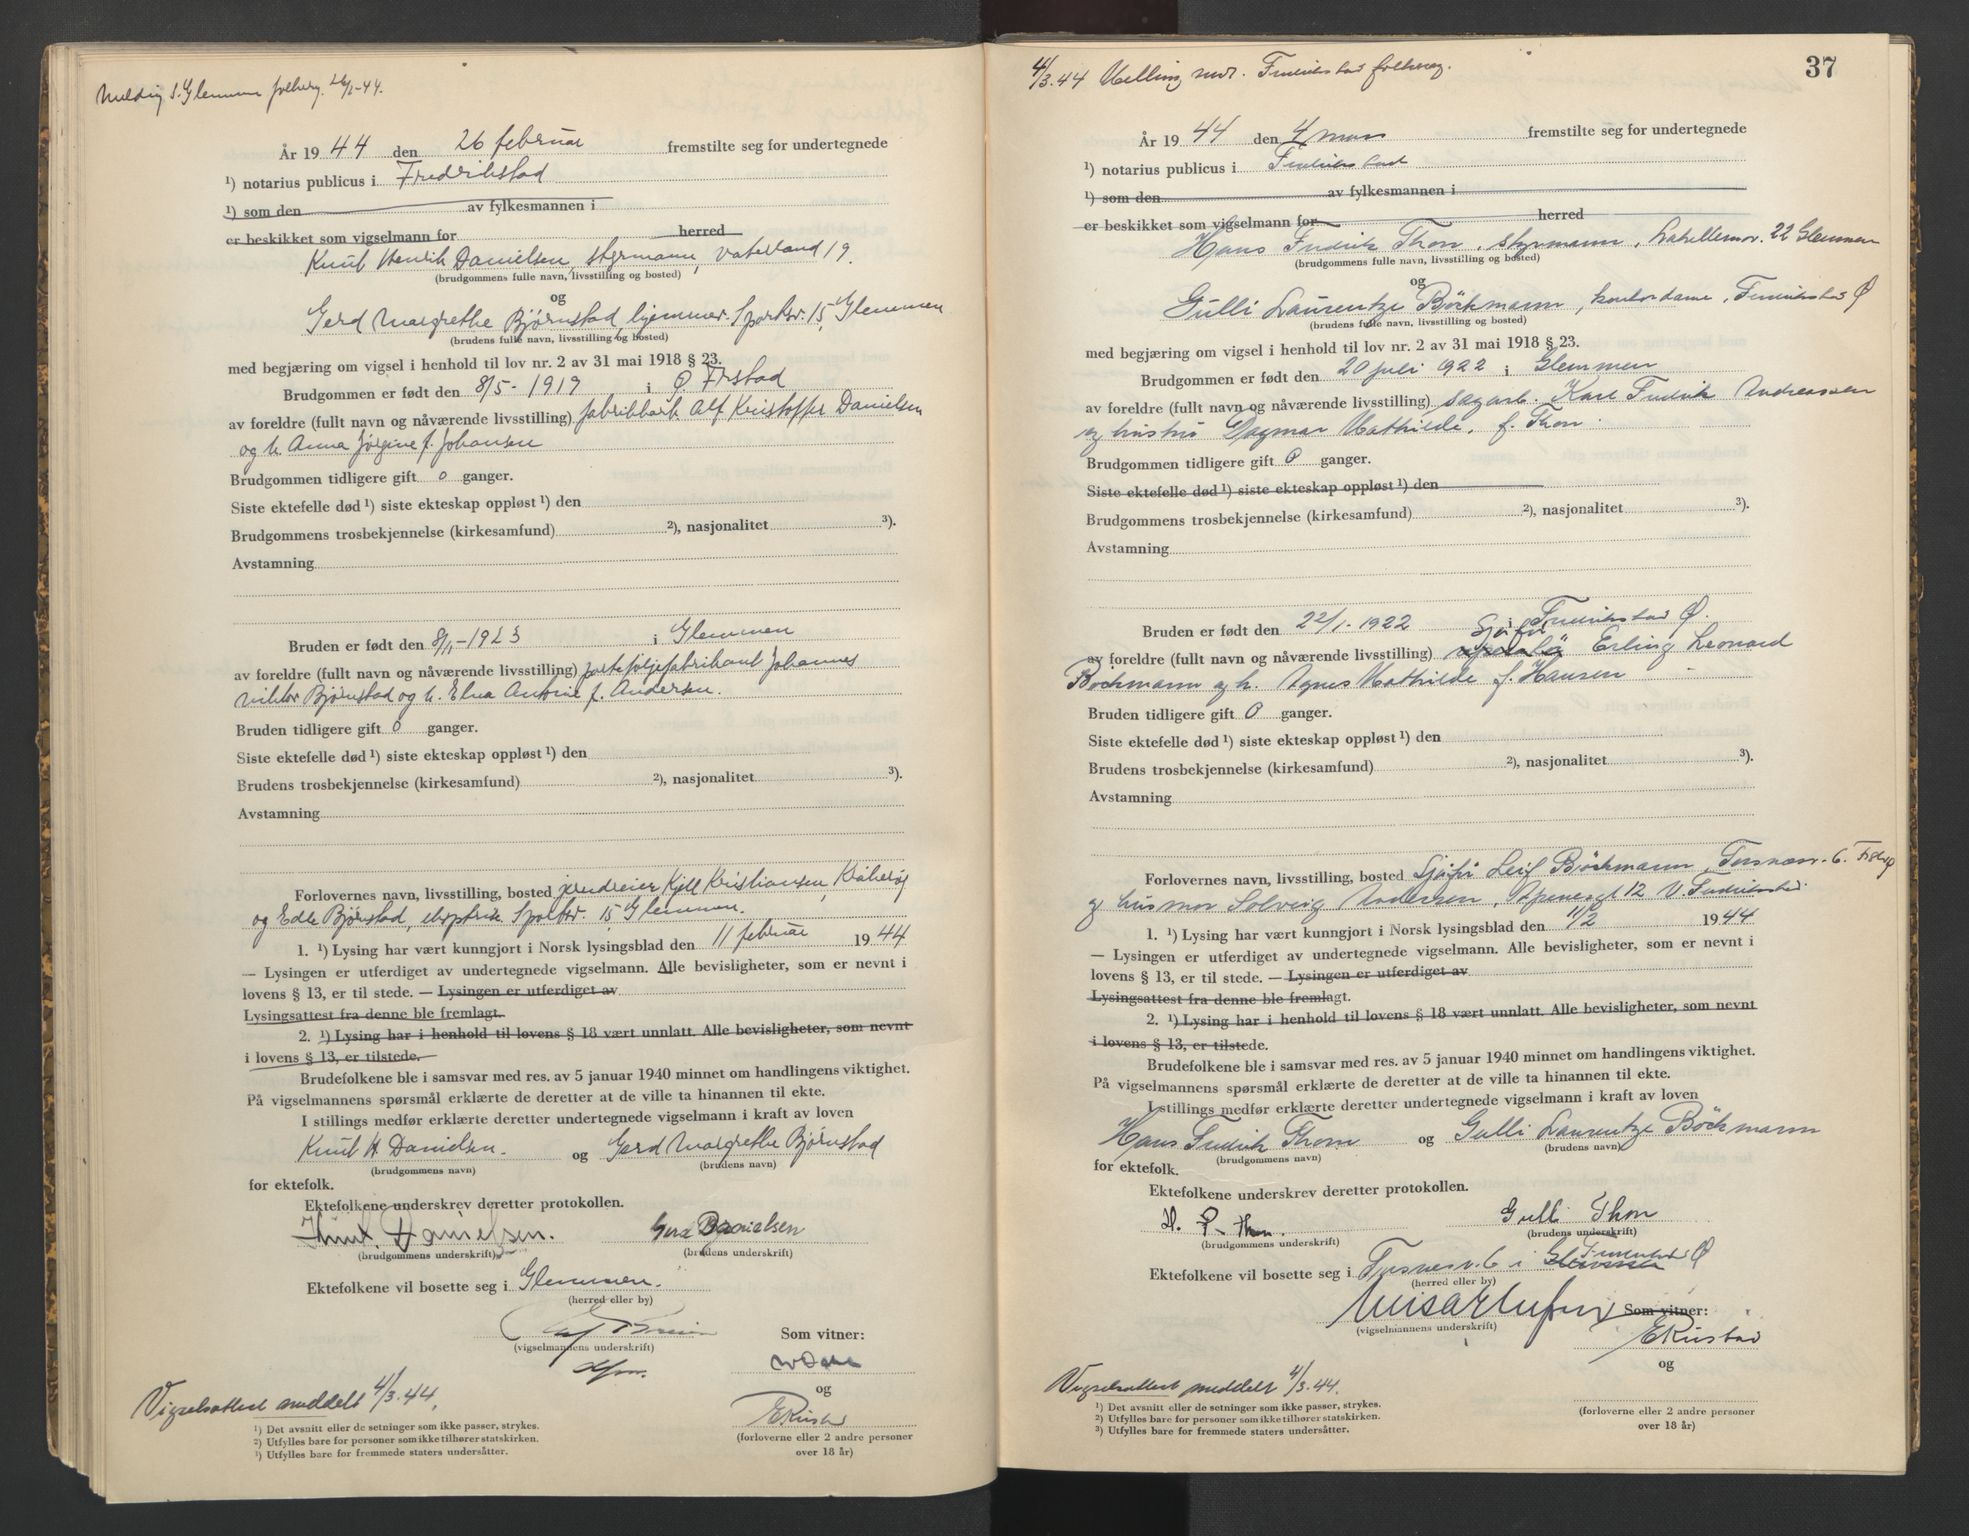 Melding s. Glemmen folkereg. 26/2-44.
År 1944 den 26 februar fremstilte seg for undertegnede
¹) notarius publicus i Fredrikstad
¹) som den av fylkesmannen i
er beskikket som vigselmann for herred
Knut Henrik Danielsen, styrmann, Vaterland 19.
(brudgommens fulle navn, livsstilling og bosted)
og
Gerd Margrethe Bjørnstad, hjemmev. Sportsv. 15, Glemmen
(brudens fulle navn, livsstilling og bosted)
med begjæring om vigsel i henhold til lov nr. 2 av 31 mai 1918 § 23.
Brudgommen er født den 8/5-1919 i Ø. Frstad
av foreldre (fullt navn og nåværende livsstilling) fabrikkarb. Alf Kristoffer Danielsen
og h. Anna Jørgine f. Johansen
Brudgommen tidligere gift 0 ganger.
Siste ektefelle død ¹) siste ekteskap oppløst ¹) den
Brudgommens trosbekjennelse (kirkesamfund) ²), nasjonalitet ³).
Avstamning
Bruden er født den 8/1-1923 i Glemmen
av foreldre (fullt navn og nåværende livsstilling) porteføljefabrikant Johannes
Viktor Bjørnstad og h. Elna Antonie f. Andersen.
Bruden tidligere gift 0 ganger.
Siste ektefelle død ¹) siste ekteskap oppløst ¹) den
Brudens trosbekjennelse (kirkesamfund) ²), nasjonalitet ³).
Avstamning
Forlovernes navn, livsstilling, bosted jerndreier Kjell Kristiansen, Kråkerøy
og Edle Bjørnstad, Sportsv. 15, Glemmen.
1. ¹) Lysing har vært kunngjort i Norsk lysingsblad den 11 februar 1944
— Lysingen er utferdiget av undertegnede vigselmann. Alle bevisligheter, som er nevnt i
lovens § 13, er til stede. — Lysingen er utferdiget av
Lysingsattest fra denne ble fremlagt.
2. ¹) Lysing har i henhold til lovens § 18 vært unnlatt. Alle bevisligheter, som nevnt
i lovens § 13, er tilstede.
Brudefolkene ble i samsvar med res. av 5 januar 1940 minnet om handlingens viktighet.
På vigselmannens spørsmål erklærte de deretter at de ville ta hinannen til ekte.
I stillings medfør erklærte deretter undertegnede vigselmann i kraft av loven
Knut H. Danielsen. og Gerd Margrethe Bjørnstad
(brudgommens navn) (brudens navn)
for ektefolk.
Ektefolkene underskrev deretter protokollen.
Knut Danielsen. Gerd Danielsen
(brudgommens underskrift) (brudens underskrift)
Ektefolkene vil bosette seg i Glemmen.
(herred eller by)
Som vitner:
(vigselmannens underskrift)
og
Vigselsattest meddelt 4/3.44.
EKristad
¹) Det avsnitt eller de setninger som ikke passer, strykes.
²) Utfylles bare for personer som ikke tilhører statskirken.
³) Utfylles bare for fremmede staters undersåtter.
(forloverne eller 2 andre personer
over 18 år)
4/3.44 Melling mdt. Fredrikstad folkereg.
37
År 1944 den 4 mars fremstilte seg for undertegnede
¹) notarius publicus i Fredrikstad
¹) som den av fylkesmannen i
er beskikket som vigselmann for herred
Hans Fredrik Thon, styrmann, Lakellemov. 22 Glemmen
(brudgommens fulle navn, livsstilling og bosted)
og
Gulli Laurentze Böckmann, kontordame, Fredrikstad Ø
(brudens fulle navn, livsstilling og bosted)
med begjæring om vigsel i henhold til lov nr. 2 av 31 mai 1918 § 23.
Brudgommen er født den 20 juli 1922 i Glemmen
av foreldre (fullt navn og nåværende livsstilling) sagarb. Karl Fredrik Andreassen
og hustru Dagmar Mathilde, f. Thon.
Brudgommen tidligere gift 0 ganger.
Siste ektefelle død ¹) siste ekteskap oppløst ¹) den
Brudgommens trosbekjennelse (kirkesamfund) ²), nasjonalitet ³).
Avstamning
Bruden er født den 22/1-1922 i Fredrikstad Ø.
av foreldre (fullt navn og nåværende livsstilling) Sjåfør Erling Leonard
Böckmann og h. Agnes Mathilde f. Hansen
Bruden tidligere gift 0 ganger.
Siste ektefelle død ¹) siste ekteskap oppløst ¹) den
Brudens trosbekjennelse (kirkesamfund) ²), nasjonalitet ³).
Avstamning
Forlovernes navn, livsstilling, bosted Sjåfør Leif Böckmann, Torsnesv. 6. Frstad Ø
og husmor Solveig Andersen, Apenesgt 12 V. Fredrikstad.
1. ¹) Lysing har vært kunngjort i Norsk lysingsblad den 11/2 1944
— Lysingen er utferdiget av undertegnede vigselmann. Alle bevisligheter, som er nevnt i
lovens § 13, er til stede. — Lysingen er utferdiget av
Lysingsattest fra denne ble fremlagt.
2. ¹) Lysing har i henhold til lovens § 18 vært unnlatt. Alle bevisligheter, som nevnt
i lovens § 13, er tilstede.
Brudefolkene ble i samsvar med res. av 5 januar 1940 minnet om handlingens viktighet.
På vigselmannens spørsmål erklærte de deretter at de ville ta hinannen til ekte.
I stillings medfør erklærte deretter undertegnede vigselmann i kraft av loven
Hans Fredrik Thon og Gulli Laurentze Böckmann
(brudgommens navn) (brudens navn)
for ektefolk.
Ektefolkene underskrev deretter protokollen.
H. F. Thon. Gulli Thon
(brudgommens underskrift) (brudens underskrift)
Ektefolkene vil bosette seg i Torsnesv. 6 i Glemmen Fredrikstad Ø
(herred eller by)
Som vitner:
(vigselmannens underskrift)
EKristad
og
Vigselsattest meddelt 4/3.44.
¹) Det avsnitt eller de setninger som ikke passer, strykes.
²) Utfylles bare for personer som ikke tilhører statskirken.
³) Utfylles bare for fremmede staters undersåtter.
(forloverne eller 2 andre personer
over 18 år)